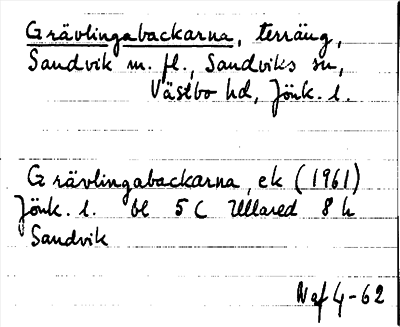 Grävlingabackarna, terräng,
Sandvik m. fl., Sandviks sn,
Västbo hd, Jönk. l.
Grävlingabackarna, ek (1961)
Jönk. l. bl 5C Ullared 8h
Sandvik
Naf 4-62